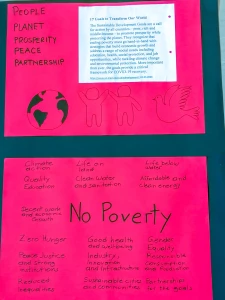 PEOPLE
PLANET
PROSPERITY
PEACE
PARTNERSHIP
17 Goals to Transform Our World
The Sustainable Development Goals are a call
for action by all countries - poor, rich and
middle-income - to promote prosperity while
protecting the planet. They recognize that
ending poverty must go hand-in-hand with
strategies that build economic growth and
address a range of social needs including
education, health, social protection, and job
opportunities, while tackling climate change
and environmental protection. More important
than ever, the goals provide a critical
framework for COVID-19 recovery.
Climate action
Life on land
Life below water
Quality Education
Clean Water and Sanitation
Affordable and clean energy
Decent work and economic Growth
No Poverty
Zero Hunger
Good health and well-being
Gender Equality
Peace Justice and Strong Institutions
Industry, Innovation and Infrastructure
Responsible Consumption and Production
Reduced Inequalities
Sustainable cities and communities
Partnerships for the Goals